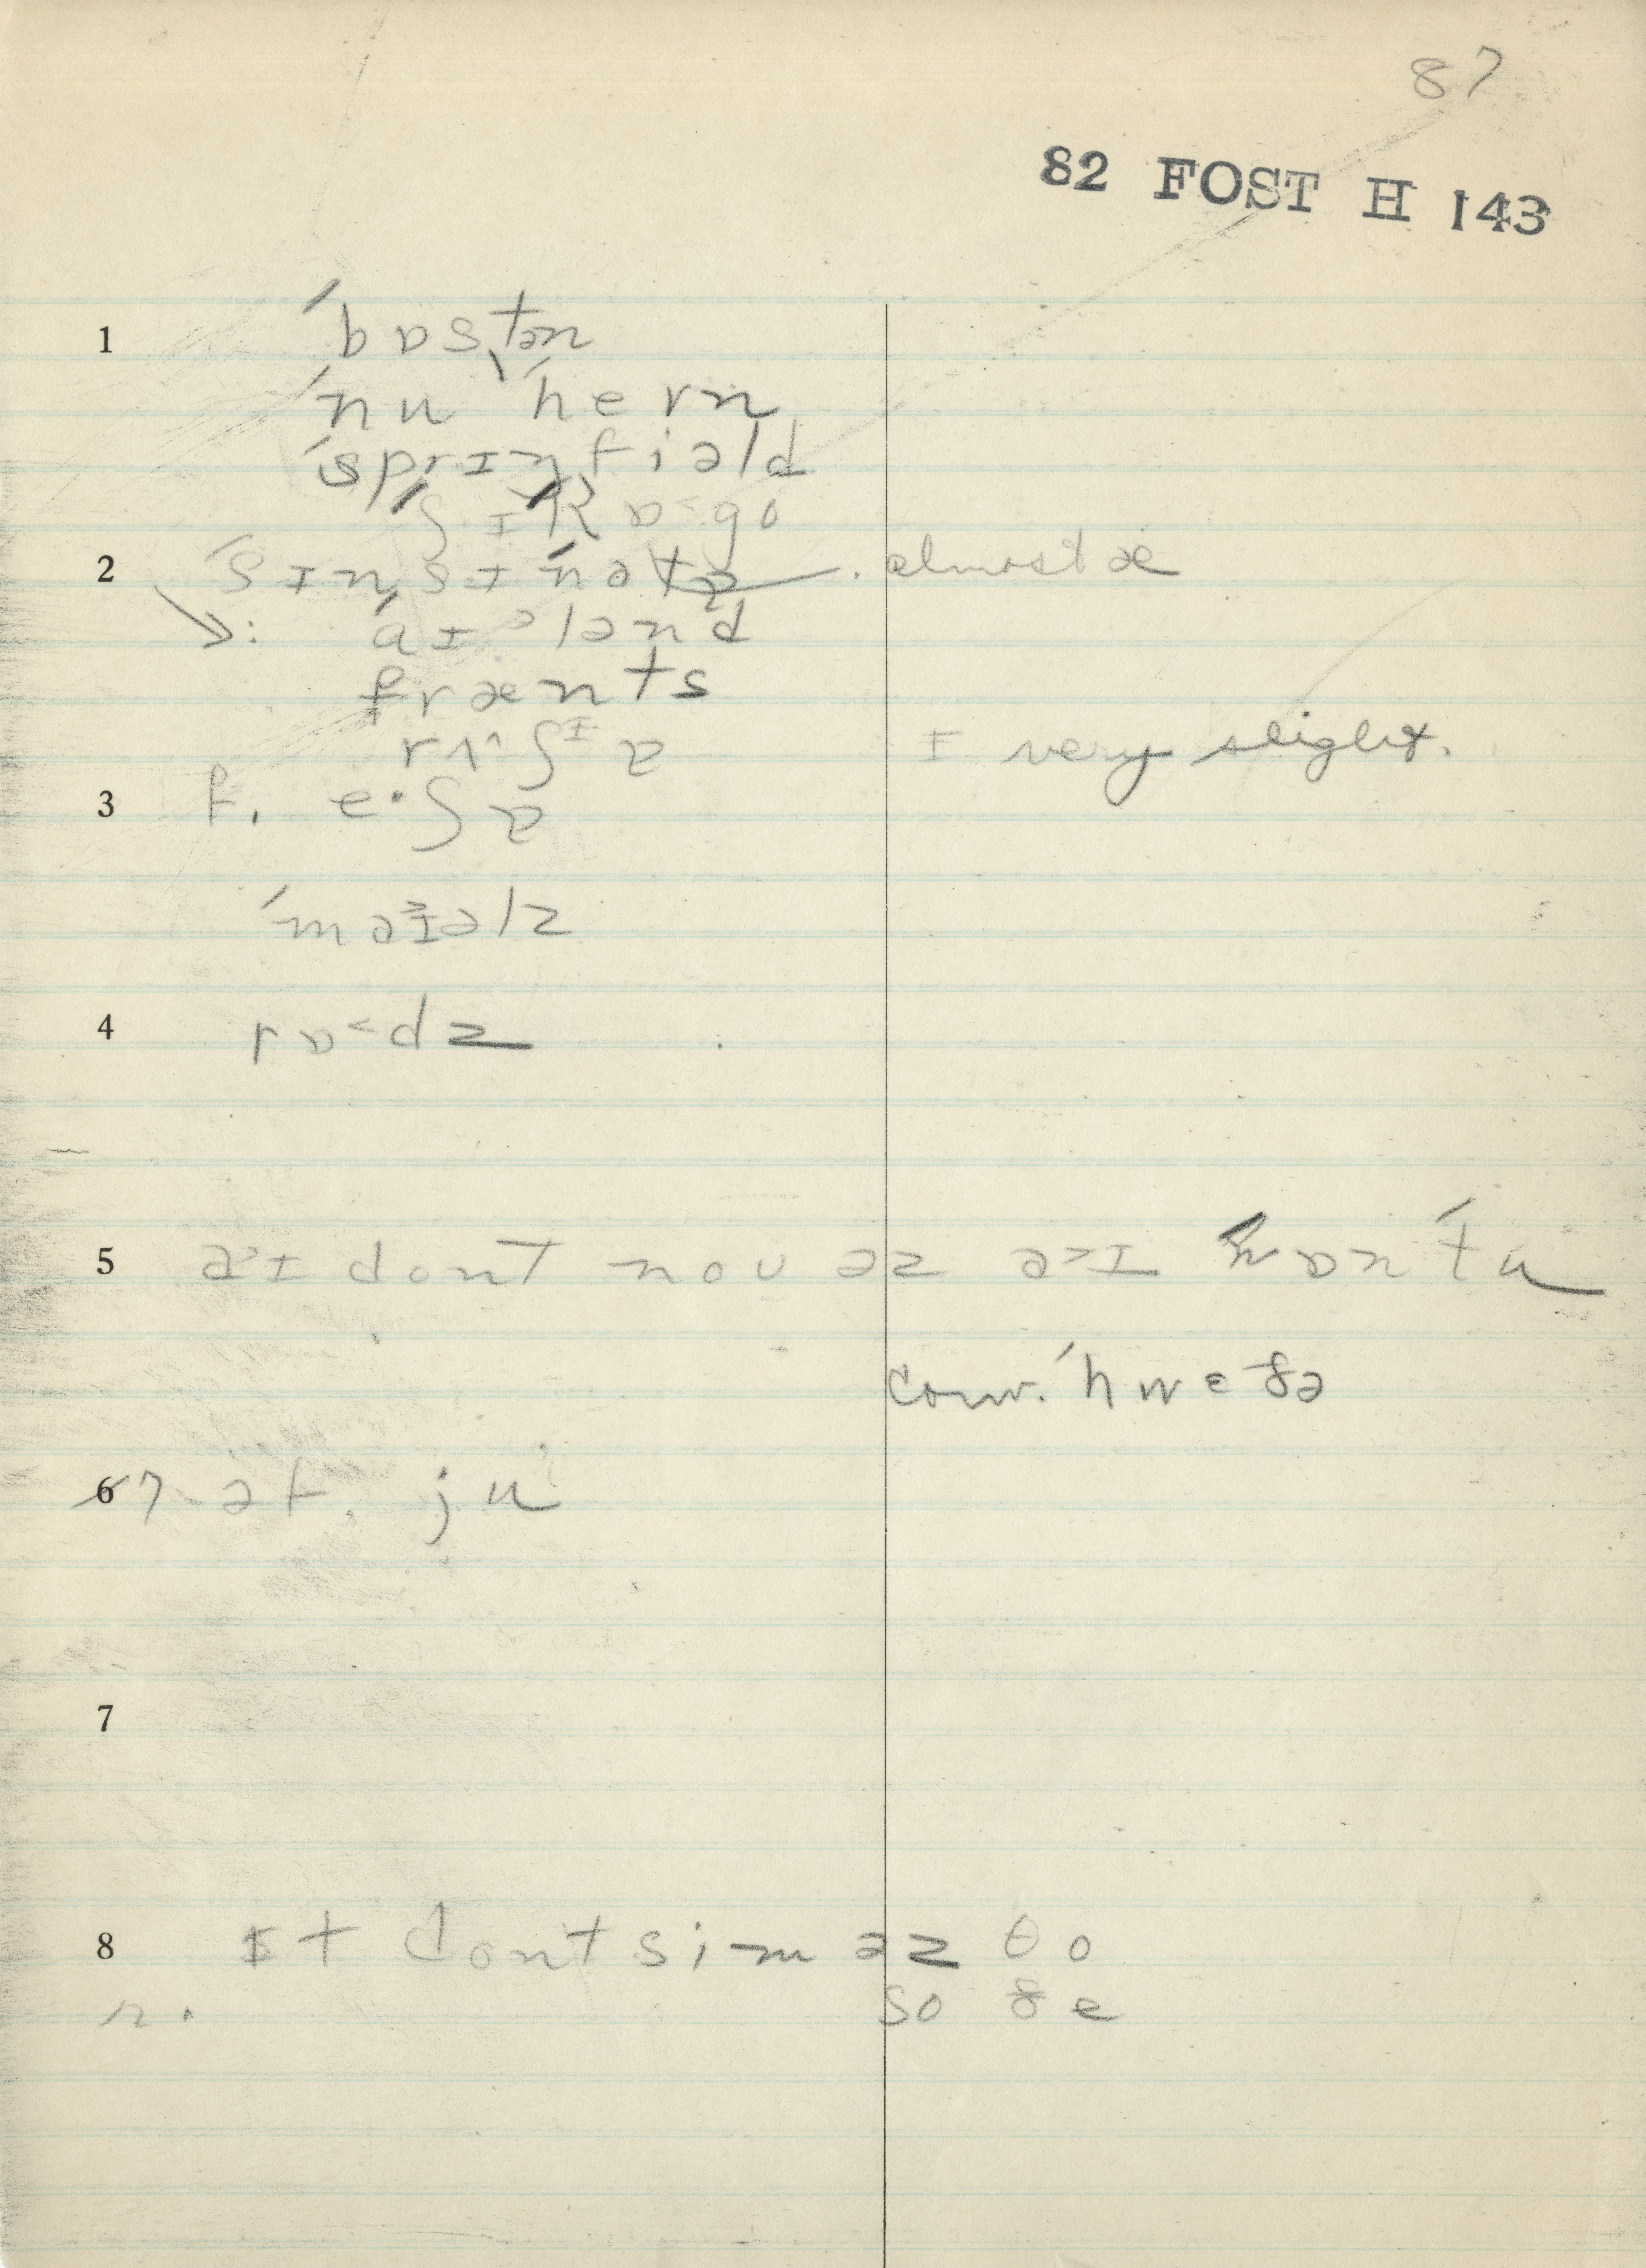 87
82 FOST H 143
1 ˈbɒstən
ˈnu ˈhevn
ˈsprɪŋfiəld
ʃɪˈkɒ˂go
2 ˈsɪnsɪˈnatɐ . almost æ
ˈaɪᵊlənd
frænts
rʌ˄ʃᶦɐ ɪ very slight.
3 f. e·ʃɐ
ˈmaɪəlz
4 rɒ˂dz
5 a˃ɪ dont noʊ əz a˃ɪ hɒn tu
conv. ˈhwɛðə
6 7 əf. ju
7
8 ɪt dont sim əz θo
n. so ðe